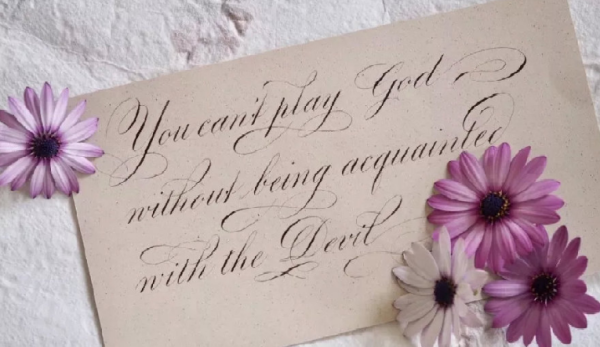 You can't play God
without being acquainted
with the Devil